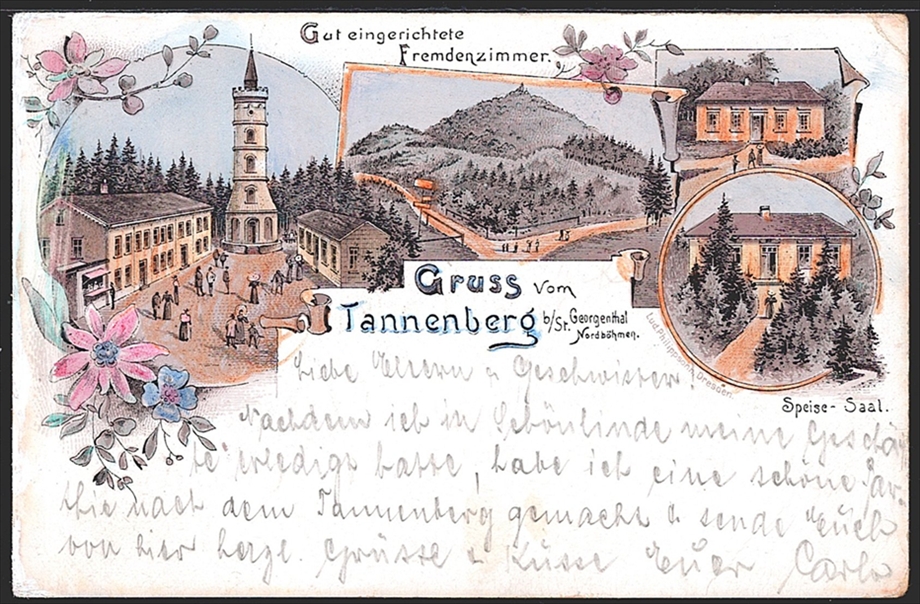 Gut eingerichtete
Fremdenzimmer.
Gruss vom
Tannenberg b/St. Georgenthal
Nordböhmen.
Lud. Philippsohn, Dresden.
Speise-Saal.
Liebe Eltern u Geschwister,
Nachdem ich in Schönlinde meine Geschäf
te erledigt hatte, habe ich eine schöne Par-
thie nach dem Tannenberg gemacht u. sende Euch
von hier herzl. Grüsse u Küsse Euer Carlo